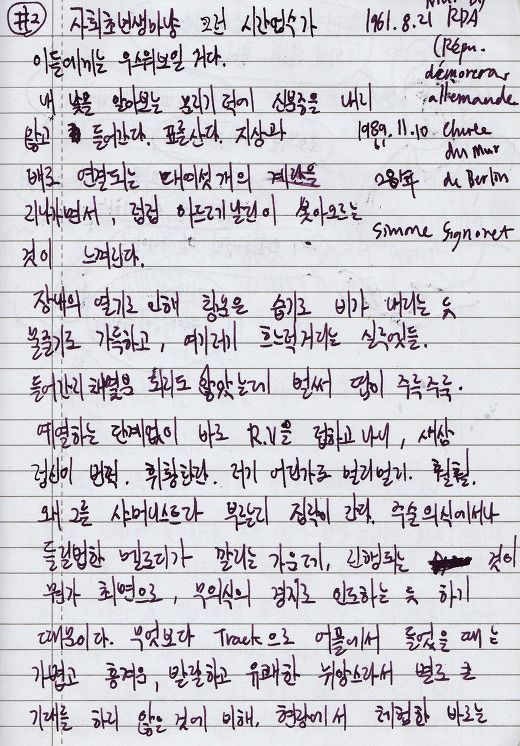 #2 사회초년생마냥 그런 시간엄수가 1961.8.21 RDA
이들에게는 우스워보일 거다. (Répu.
démocra
내 낯을 알아보는 분위기 덕에 신분증을 내지 allemande
않고 들어간다. 표를 산다. 지상과 1989.11.10 Chute
du Mur
배로 연결되는 대여섯 개의 계단을 28년 de Berlin
지나가면서, 덥덥 아드레날린이 솟아오르는
Simone Signoret
것이 느껴진다.
장내의 열기로 인해 황토은 습기로 비가 내리는 듯
물줄기로 가득하고, 여기저기 흐느적거리는 실루엣들.
들어간지 채 몇분 되지도 않았는데 벌써 땀이 주륵주륵.
예열하는 단계없이 바로 R.V을 접하고 나니, 새삼
정신이 번쩍. 휘황찬란. 저기 어딘가로 멀리멀리. 훨훨.
왜 그를 샤머니스트라 부르는지 짐작이 간다. 주술의식에서나
들릴법한 멜로디가 깔리는 가운데, 진행되는 것이
뭔가 최면으로, 무의식의 경지로 인도하는 듯 하기
때문이다. 무엇보다 Track으로 어플에서 들었을 때는
가볍고 흥겨운, 발랄하고 유쾌한 뉘앙스라서 별로 큰
기대를 하지 않은 것에 비해, 현장에서 체험한 바로는